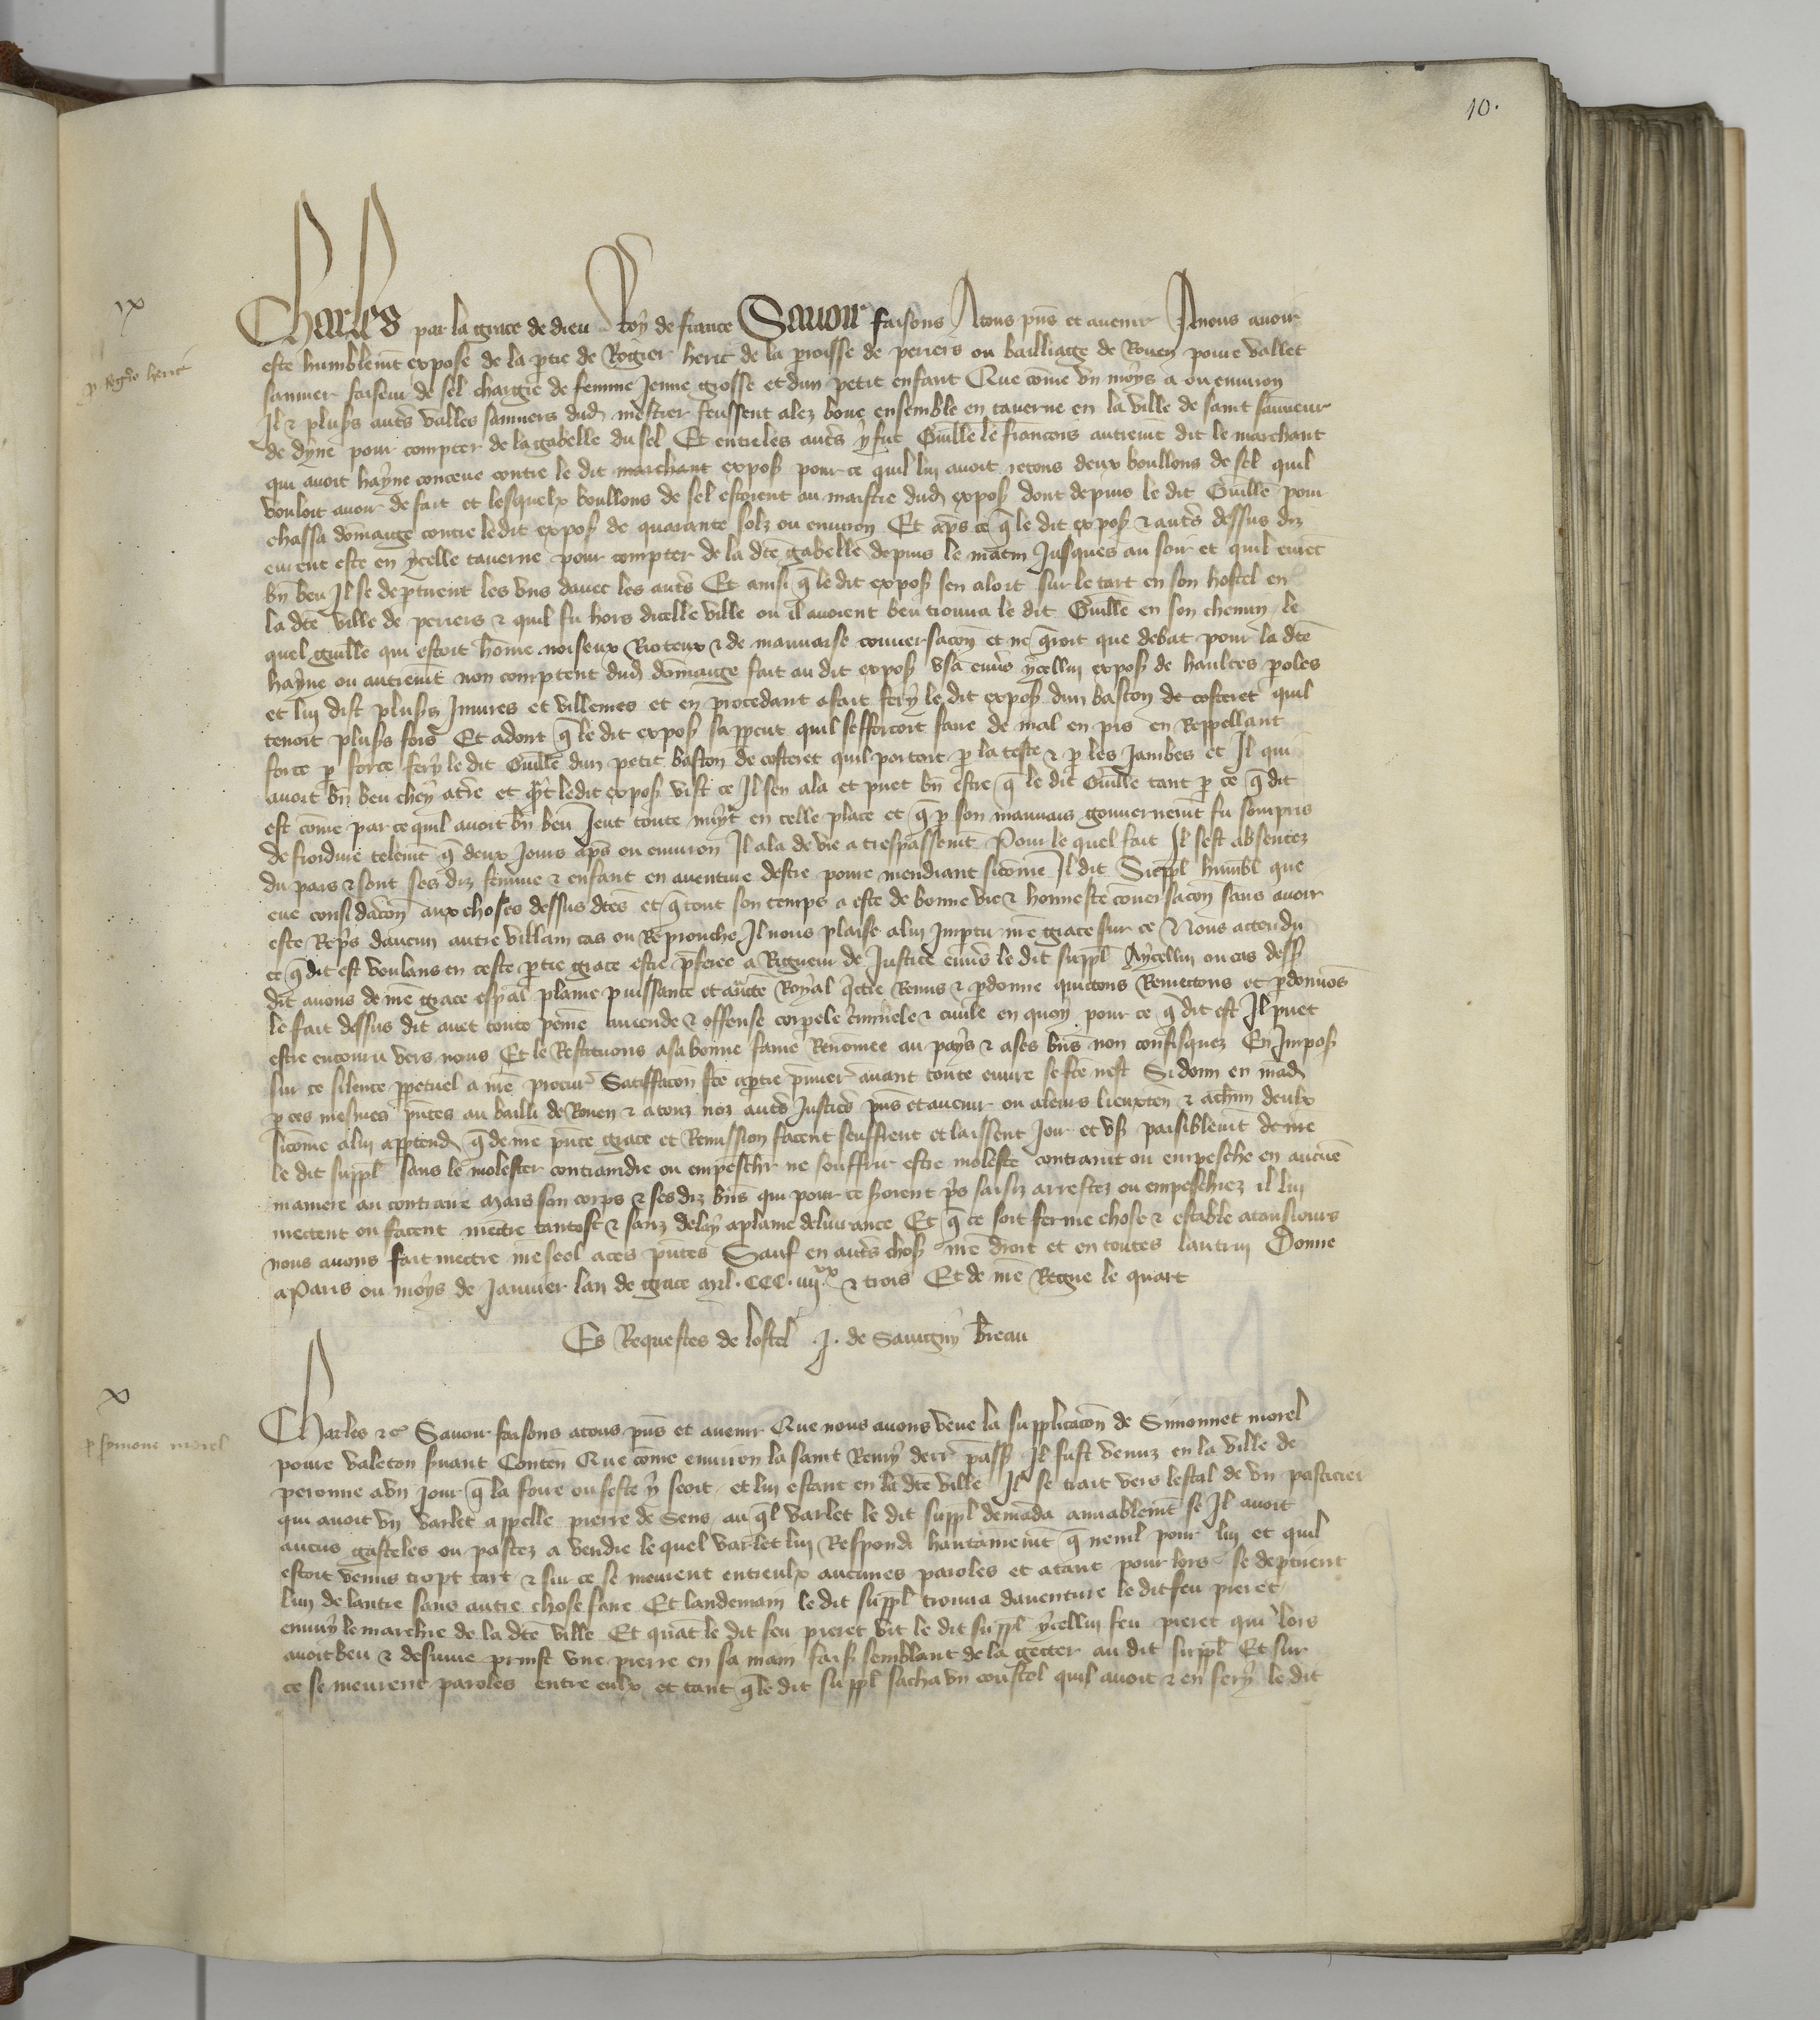 10.
ix
p Rogero herit
Charles par la grace de dieu Roy de france Sauoir faisons Atous pñs et auenir Anous auoir
este humblemēt expose de la ptie de Rogier herit de la proisse de periers ou bailliage de Rouen poure vallet
saunier faiseur de sel chargie de femme Jenne grosse et dun petit enfant Que cōme vn moys a ou enuiron
Il & plus⁹s autˢ valles sauniers dud mestier feussent alez boire ensemble en tauerne en la ville de saint sauueur
de dyue pour compter de la gabelle du sel Et entre les autˢ y fut Guille le francois autremēt dit le marchant
qui auoit hayne conceue contre le dit marchant expos pour ce quil lui auoit recous deux boullons de sel quil
vouloit auoir de fait et lesquelx boullons de sel estoient au maistre dud expos dont depuis le dit Guille pour
chassa dōmaige contre ledit expos de quarante solz ou enuiron Et apˢ ce q̄ le dit expos & autˢ dessus diz
eurent este en ycelle tauerne pour compter de la dt̄e gabelle depuis le matin Jusques au soir et quil eurēt
bn̄ beu Il se deptirent les vns dauec les autˢ Et ainsi q̄ le dit expos sen aloit sur le tart en son hostel en
la dt̄e ville de periers & quil fu hors dicelle ville ou il auoient beu trouua le dit Guille en son chemin le
quel guille qui estoit hōme noiseux Rioteux & de mauuaise conuersacōn et ne q̄roit que debat pour la dt̄e
hayne ou autremēt non comptent dud dōmaige fait au dit expos vsa enuˢ ycellui expos de haultes poles
et lui dist plus⁹s Iniures et villenies et en procedant afait fery le dit expos dun baston de costeret quil
tenoit plus⁹s fois Et adont q̄ le dit expos sappceut quil sefforcoit faire de mal en pis en Reppellant
force p force fery le dit Guille dun petit baston de costeret quil portoit p la teste & p les Jambes et Il qui
auoit bn̄ beu chey atˢre et qñt ledit expos vist ce Il sen ala et puet bn̄ estre q̄ le dit Guille tant p ce q̄ dit
est cōme par ce quil auoit bn̄ beu Jeut toute nuyt en celle place et q̄ p son mauuais gouuernemēt fu sourpris
de froidure telemēt q̄ deux Jours apˢ ou enuiron Il ala de vie a trespassemēt Pour le quel fait Il sest absentez
du pais & sont ses diz femme & enfant en auenture destre poure mendiant sicōme Il dit Suppl humbl que
eue considacōn aux choses dessus dt̄es et q̄ tout son temps a este de bonne vie & honneste cōuersacōn sans auoir
este Repˢ daucun autre villain cas ou Reprouche Il nous plaise alui Impti nrē grace sur ce Nous attendu
ce q̄ dit est voulans en ceste ptie grace estre p̄feree a Rigueur de Justice enuˢ le dit suppl Aycellui ou cas dess
dit auons de nrē grace espal plaine puissance et auctē Royal q̄ctie Remis & pdonne quictons Remectons et pdonnōs
le fait dessus dit auec toute peine amende & offense corpele cˢiminele & ciuile en quoy pour ce q̄ dit est Il puet
estre encouru vers nous Et le Restituons asa bonne fame Renōmee au pays & ases bn̄s non confisquez En Impos
sur ce silence ppetuel a nrē procur Satiffacōn fc̄e aptie pmier auant toute euure se fc̄e nest Si donn en mād
p ces mesmes pñtes au bailli de Rouen & atouz noz autˢ Justicˢ pñs et auenir ou aleurs lieuxten & achun deulx
sicōme alui apptend q̄ de nrē pñte grace et Remission facent seuffrent et laissent Joir et vs paisiblemēt de nrē
le dit suppl sans le molester contraindre ou empeschr ne souffrir estre moleste contraint ou empesche en aucūe
maniere au contraire Mais son corps & ses diz bn̄s qui pour ce soient pˢs saisiz arrestez ou empeschiez il lui
mectent ou facent mectre tantost & sanz delay aplaine deliurance Et q̄ ce soit ferme chose & estable atousiours
nous auons fait mectre nrē seel aces pñtes Sauf en autˢ chos nrē droit et en toutes lautrui Donne
aParis ou moys de Januier lan de grace mil.CCC.iiijˣˣ & trois Et de nrē Regne le quart
Es Requestes de lostel .J. de Sauigny breau
x
p symone morel
Charles &c Sauoir faisons atous pñs et auenir Que nous auons veue la supplicacōn de Simonnet morel
poure valeton suiant Conten Que cōme enuiron la saint Remy derr pass Il fust venuz en la ville de
peronne a vn Jour q̄ la foire ou feste y seoit et lui estant en la dt̄e ville Il se trait vers lestal de vn pasticier
qui auoit vn varlet appelle pierre de Sens au q̄l varlet le dit suppl demāda amiablemēt se Il auoit
aucus gasteles ou pastez a vendre le quel varlet lui Respond hautainemēt q̄ nenil pour lui et quil
estoit venus tropt tart & sur ce se meurent entreulx aucunes paroles et atant pour lors se deptirent
lun de lautre sans autre chose faire Et landemain le dit suppl trouua dauenture le dit feu pieret
enmy le marchie de la dt̄e ville Et quāt le dit feu pieret vit le dit suppl ycellui feu pieret qui lors
auoit beu & desiune prinst vne pierre en sa main fais semblant de la getter au dit suppl Et sur
ce se meurent paroles entre eulx et tant q̄ le dit suppl sacha vn coustel quil auoit & en fery le dit